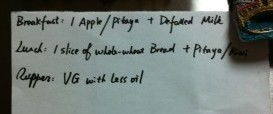 Breakfast: 1 Apple/Pitaya + Defatted Milk
Lunch: 1 slice of whole-wheat Bread + Pitaya/Kiwi
Rupper: VG with less oil